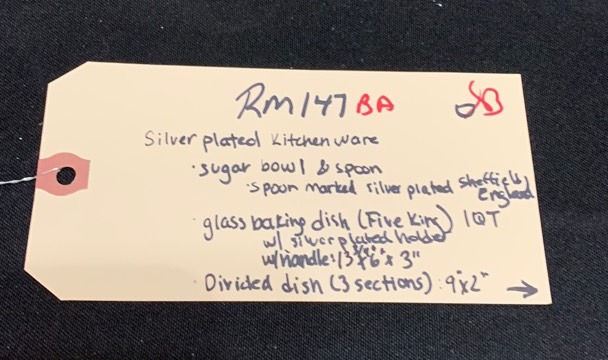 RM147 BA
Silver plated Kitchenware
· sugar bowl & spoon
· spoon marked silver plated Sheffield,
England
· glass baking dish (Five King) 1QT
w/ silverplated holder
w/handle: 13 3/4" x 6" x 3"
· Divided dish (3 sections): 9" x 2" →